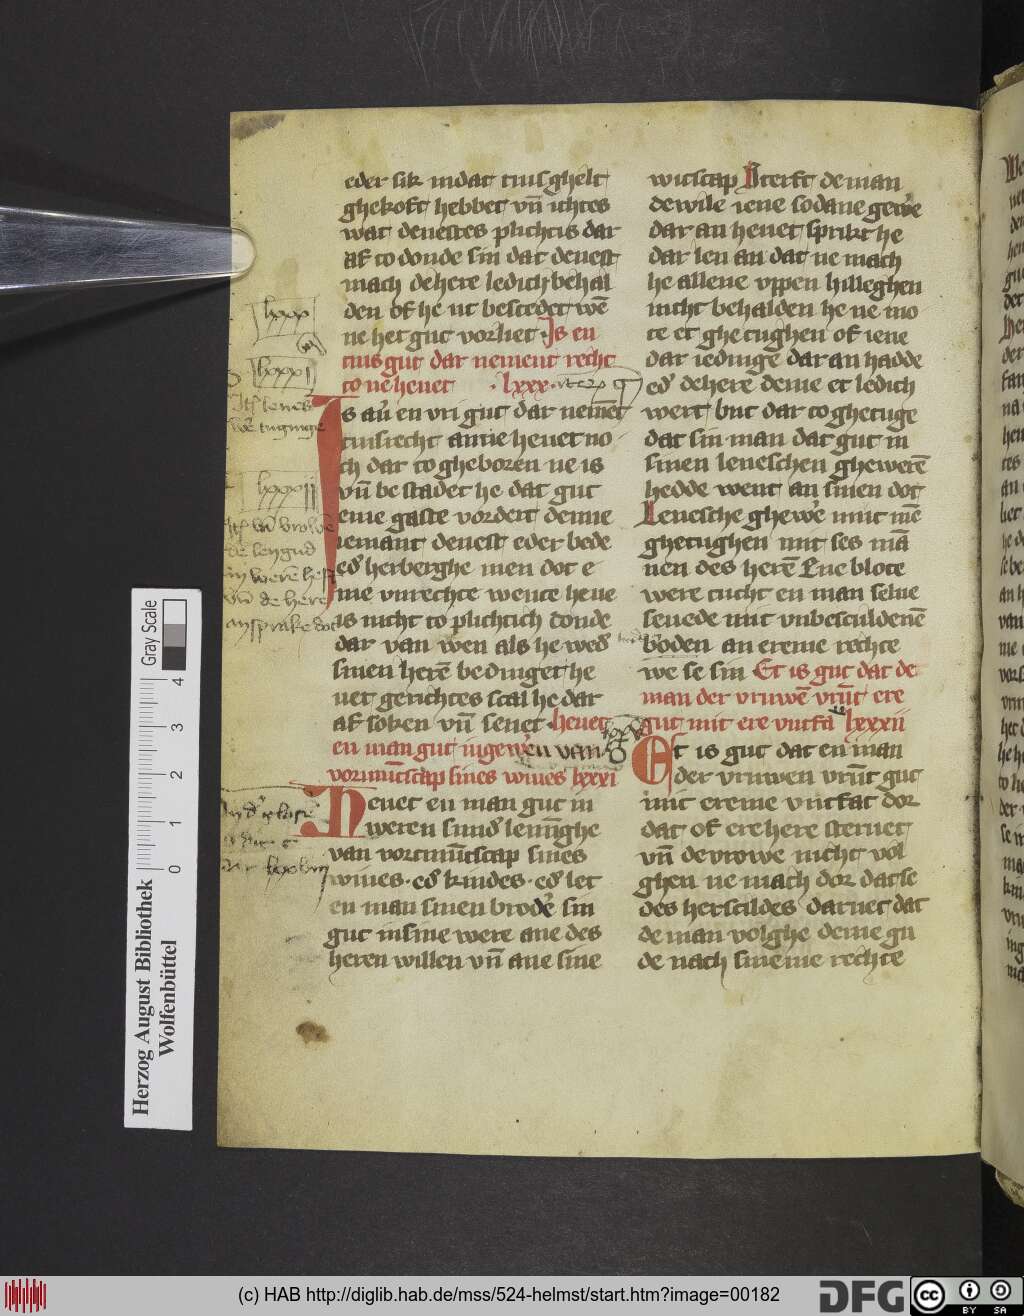 eder sik mdat tinsghelt
ghekoft hebbet vn̄ ichtes
wat deuestes plichtis dar
af to donde sin dat deuest
mach dehere ledich behal
den of he ut bescedet wē
ne het gut vorliet · Is en
tins gut dar nement recht
to ne heuet · lxxx ·
Is au̕ en vri gut dar nemēt
tinsrecht anne heuet no
ch dar to gheboren ne is
vn̄ bestadet he dat gut
eme gaste vordert denne
iemant deuest eder bede
ed̕ herberghe men dot e
me vnrechte wente heue
is nicht to plichtich donde
dar van wen als he wed̕
sinen herē bedinget he
uet gerichtes scal he dar
af soken vn̄ seuet · heuet
en man gut ingewe̕ en van
vormūtscap sines wiues lxxxi
Heuet en man gut in
weren sund̕ lenūghe
van vormūtscap sines
wiues · ed̕ kindes · ed̕ let
en man sinen brode̕ sin
gut insine were ane des
heren willen vn̄ ane sine
witscap Sterft de man
dewile iene sodane gewe̕
dar an heuet sprikt he
dar len an dat ne mach
he allene vppen hilleghen
nicht behalden he ne mo
te et ghetughen of iene
dar iedinge dar an hadde
ed̕ dehere deme et ledich
wert but dar to ghetuge
dat sin man dat gut in
sinen leneschen gheweřē
hedde went an sinen dot
Lenesche ghewe̕ mit mē
ghetughen mit ses mā
nen des herē Ene blote
were tucht en man selue
seuede mit vnbesculdenē
boden an ereme rechte
we se sin Et is gut dat de
man der vruwē vrūt ere
gut mit ere vntfa lxxxii
Et is gut dat en man
der vruwen vrūt gut
mit ereme vntfat dor
dat of ere here steruet
vn̄ de vrowe nicht vol
ghen ne mach dor dat se
des herscildes daruet dat
de man volghe deme gu
de nach sineme rechte
lxxx
lxxxi
lxxxii
Herzog August Bibliothek
Wolfenbüttel
Gray Scale
0 1 2 3 4
(c) HAB http://diglib.hab.de/mss/524-helmst/start.htm?image=00182
DFG
cc
BY SA